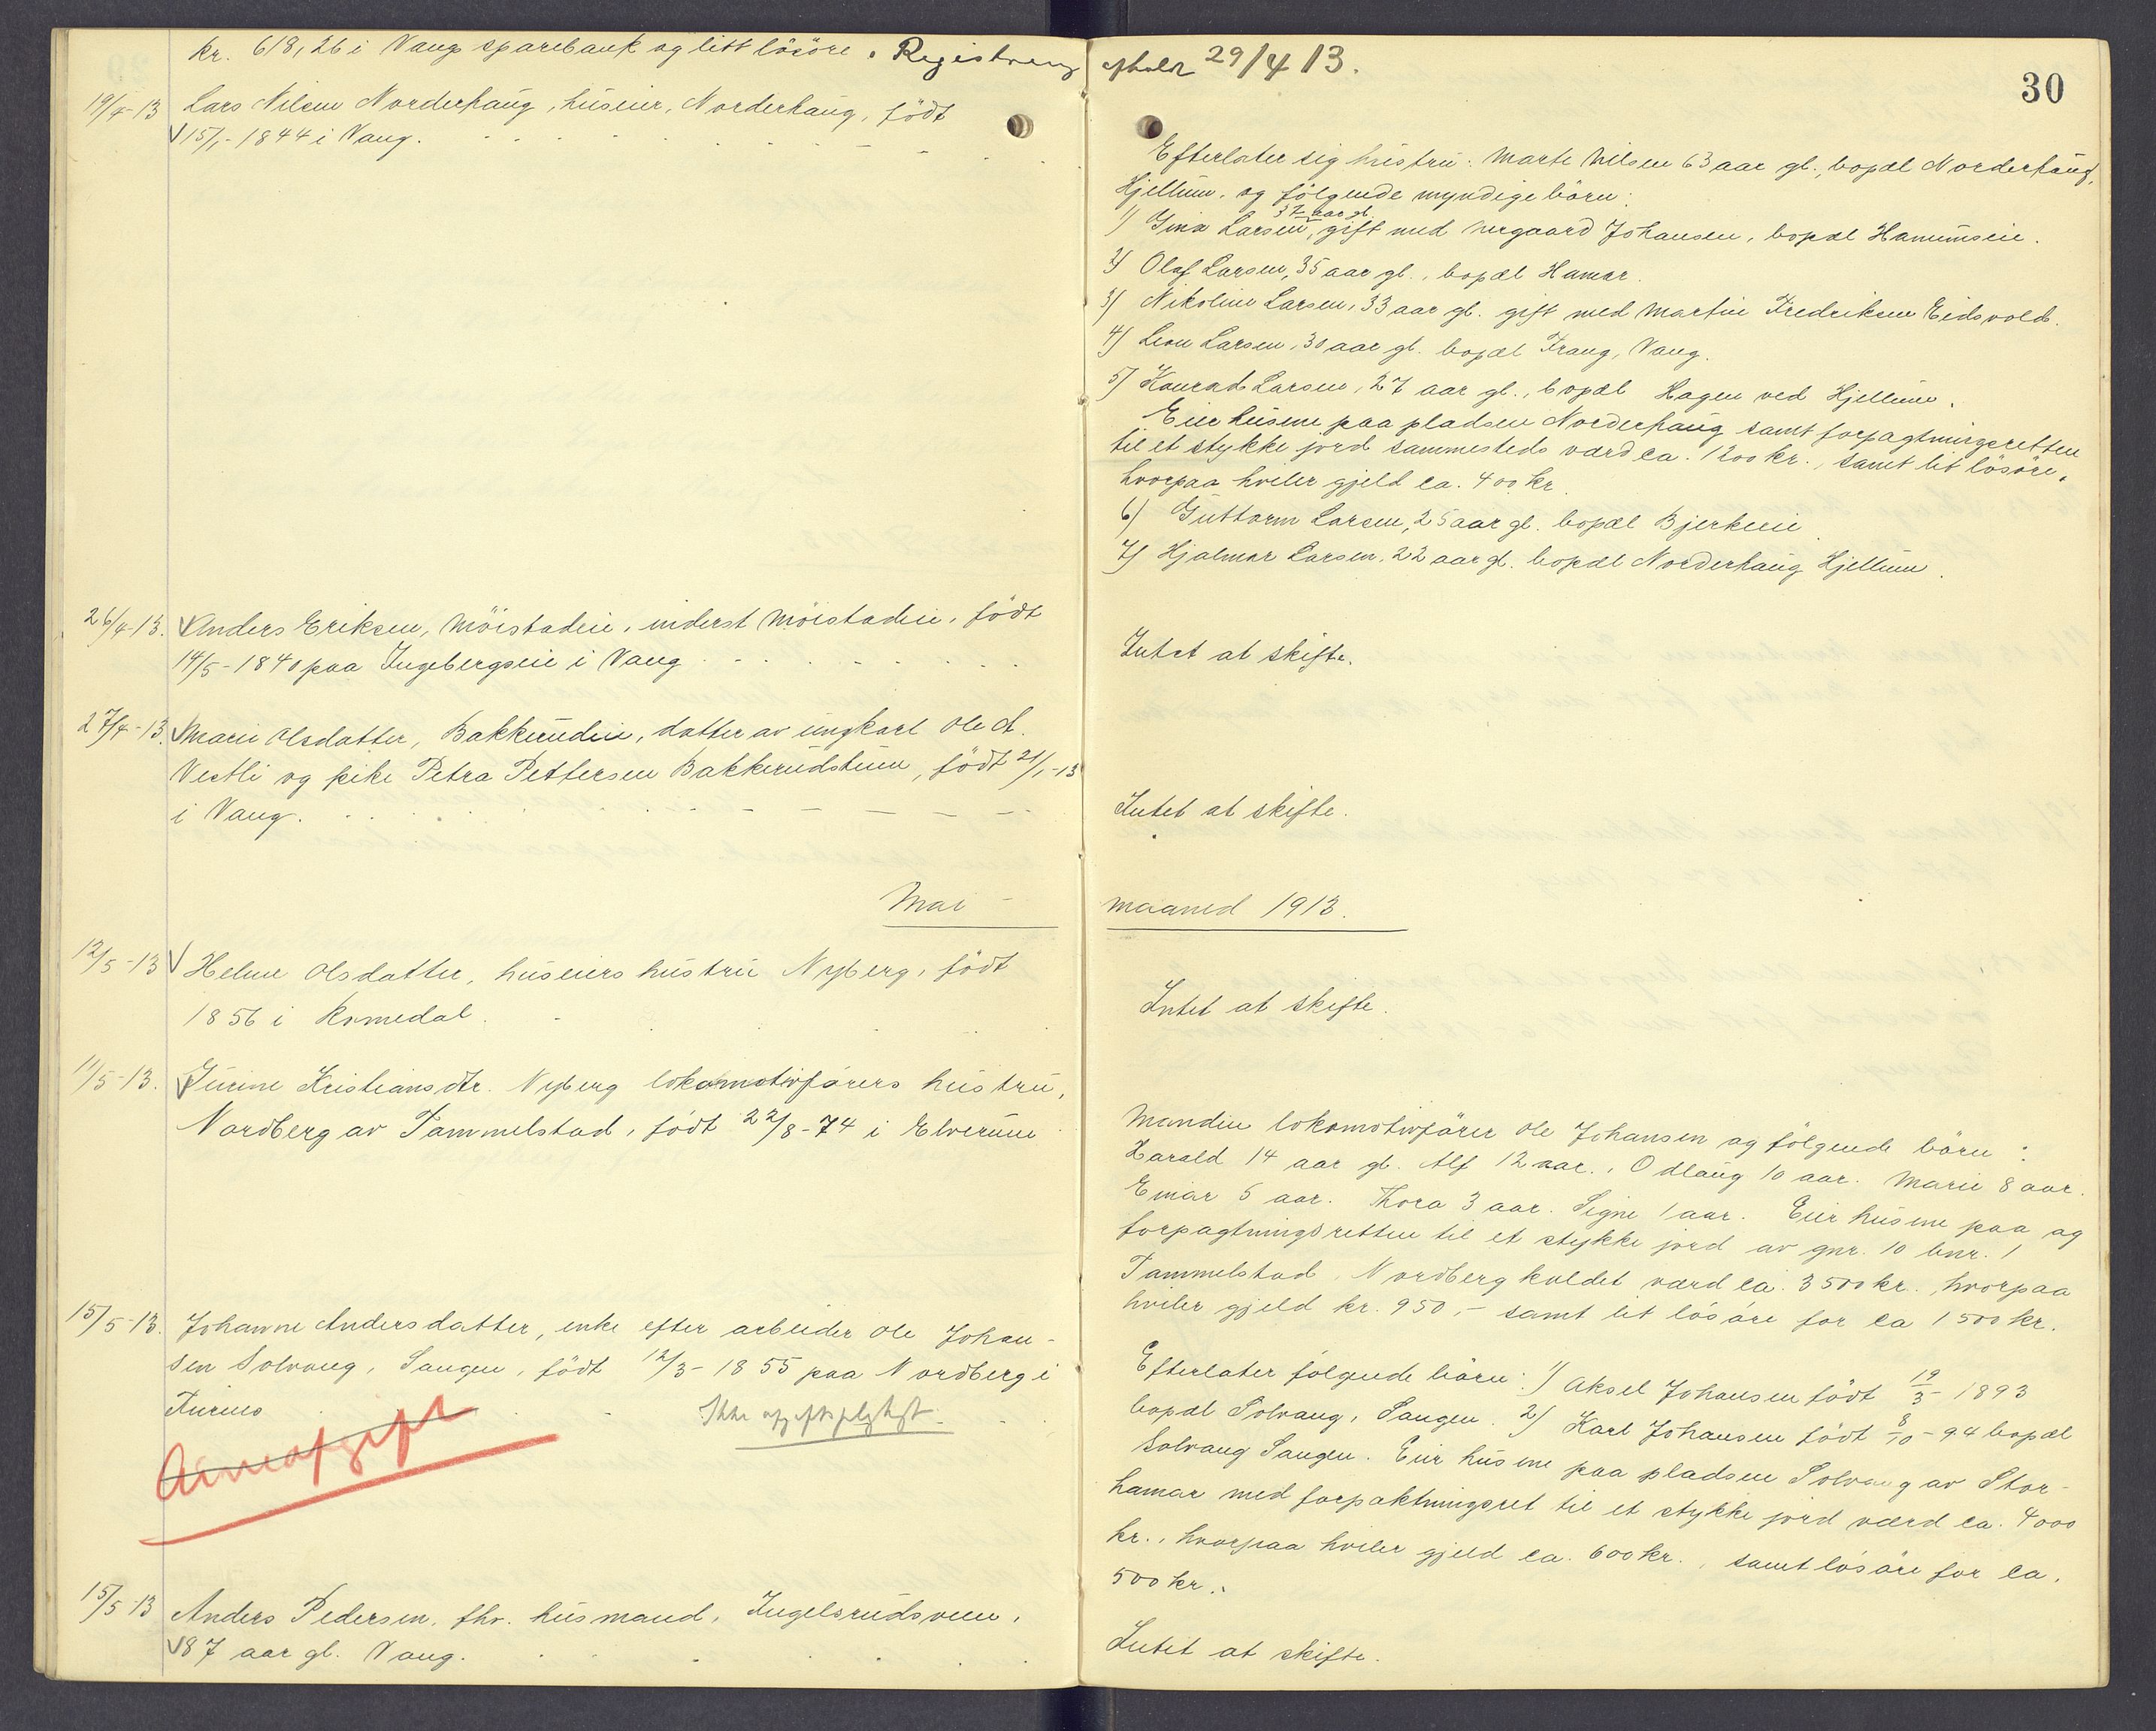 kr. 618,26 i Vang sparebank og litt lösöre. Registrering afholdt 29/4 13.
30
19/4-13 Lars Nilsen Norderhaug, huseier, Norderhaug, född
√15/1-1844 i Vang.
Efterlater sig hustru: Marte Nilsen 63 aar gl., bopæl Norderhaug,
Hjellum, og fölgende myndige börn:
1) Gina Larsen, 37 aar gl. gift med Nergaard Johansen, bopæl Hanumseie.
2) Olaf Larsen, 35 aar gl., bopæl Hamar.
3) Nikoline Larsen, 33 aar gl. gift med Martin Fredriksen Eidsvold.
4) Leon Larsen, 30 aar gl. bopæl Frang, Vang.
5) Konrad Larsen, 27 aar gl., bopæl Hagen ved Hjellum.
Eier husene paa pladsen Norderhaug samt forpagtningsretten
til et stykke jord sammesteds værd ca. 1200 kr., samt lit lösöre,
hvorpaa hviler gjeld ca. 400 kr.
6) Guttorm Larsen, 25 aar gl. bopæl Bjerkeeie
7) Hjalmar Larsen, 22 aar gl. bopæl Norderhaug Hjellum.
26/4-13. √Anders Eriksen, Möistadeie, inderst Möistadeie, född
14/5-1840 paa Ingebergseie i Vang
Intet at skifte.
27/4-13. √Marie Olsdatter, Bakkerudeie, datter av ungkarl Ole A.
Vestli og pike Petra Pettersen Bakkerudstuen, född 21/1-13
i Vang.
Intet at skifte.
Mai - maaned 1913.
12/5-13 √ Helene Olsdatter, huseiers hustru Nyberg, född
1856 i Romedal.
Intet at skifte.
11/5-13. √Jurine Kristiansdtr. Nyberg lokomotivförers hustru,
Nordberg av Tammelstad, född 22/8-74 i Elverum
Manden lokomotivförer Ole Johansen og fölgende börn:
Harald 14 aar gl. Alf 12 aar., Odlaug 10 aar. Marie 8 aar.
Einar 5 aar. Thora 3 aar. Signe 1 aar. Eier husene paa og
forpagtningsretten til et stykke jord av gnr. 10 bnr. 1
Tammelstad, Nordberg kaldet værd ca. 3500 kr., hvorpaa
hviler gjeld kr. 950,- samt lit lösöre for ca 1500 kr.
15/5-13. Johanne Andersdatter, enke efter arbeider Ole Johan-
sen Solvang, Sangen, född 12/3-1855 paa Nordberg i
Furnes
Ikke afgiftspligtigt
Arveafgift
Efterlater fölgende börn: 1) Aksel Johansen född 19/3-1893
bopæl Solvang, Sangen. 2) Karl Johansen född 8/10-94 bopæl
Solvang Sangen. Eier husene paa pladsen Solvang av Stor-
hamar med forpaktningsret til et stykke jord værd ca. 4000
kr., hvorpaa hviler gjeld ca. 600 kr., samt lösöre for ca.
500 kr.
15/5-13 Anders Pedersen, fhv. husmand, Ingelsrudsveen,
√87 aar gl. Vang.
Intet at skifte.